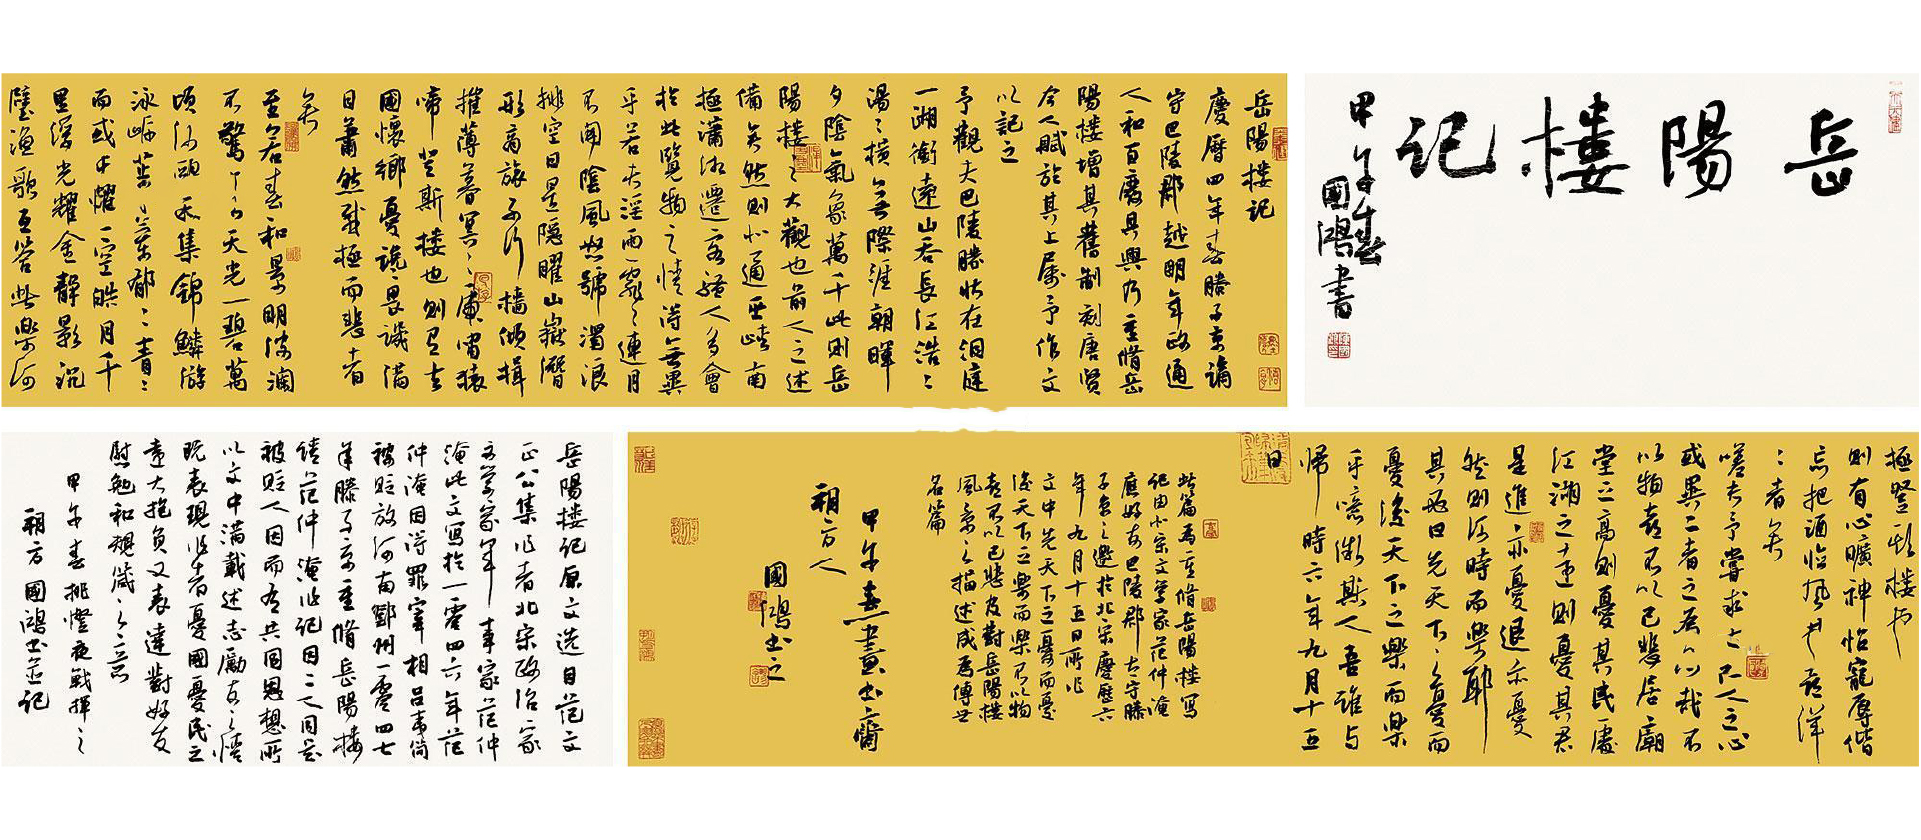 岳陽樓記
甲午年春
國鴻書
岳陽樓記
慶曆四年春滕子京謫
守巴陵郡越明年政通
人和百廢具興乃重脩岳
陽樓增其舊制刻唐賢
今人賦於其上屬予作文
以記之
予觀夫巴陵勝狀在洞庭
一湖銜遠山吞長江浩〻
湯〻橫無際涯朝暉
夕陰氣象萬千此則岳
陽樓之大觀也前人之述
備矣然則北通巫峽南
極瀟湘遷客騷人多會
於此覽物之情得無異
乎若夫淫雨霏〻連月
不開陰風怒號濁浪
排空日星隱曜山嶽潛
形商旅不行檣傾楫
摧薄暮冥〻虎嘯猿
啼登斯樓也則有去
國懷鄉憂讒畏譏滿
目蕭然感極而悲者
矣
至若春和景明波瀾
不驚上下天光一碧萬
頃沙鷗翔集錦鱗游
泳岸芷汀蘭郁〻青〻
而或長煙一空皓月千
里浮光耀金靜影沉
璧漁歌互答此樂何
極登斯樓也
則有心曠神怡寵辱偕
忘把酒臨風其喜洋
〻者矣
嗟夫予嘗求古仁人之心
或異二者之為何哉不
以物喜不以己悲居廟
堂之高則憂其民處
江湖之遠則憂其君
是進亦憂退亦憂
然則何時而樂耶
其必曰先天下之憂而
憂後天下之樂而樂
乎噫微斯人吾誰與
歸時六年九月十五
日
此篇為重脩岳陽樓寫
記由北宋文學家范仲淹
應好友巴陵郡太守滕
子京之邀於北宋慶曆六
年九月十五日所作
文中先天下之憂而憂
後天下之樂而樂不以物
喜不以己悲及對岳陽樓
風景之描述成為傳世
名篇
甲午春畫書齋
朔方人
國鴻書之
岳陽樓記原文選自范文
正公集作者北宋政治家
文學家軍事家范仲
淹此文寫於一零四六年范
仲淹因得罪宰相呂夷簡
被貶放河南鄧州一零四七
年滕子京重脩岳陽樓
請范仲淹作記因二人同是
被貶人因而有共同思想所
以文中滿載述志勵友之情
既表現作者憂國憂民之
遠大抱負又表達對好友
慰勉和規箴之意
甲午春挑燈夜戰揮之
朔方國鴻書并記